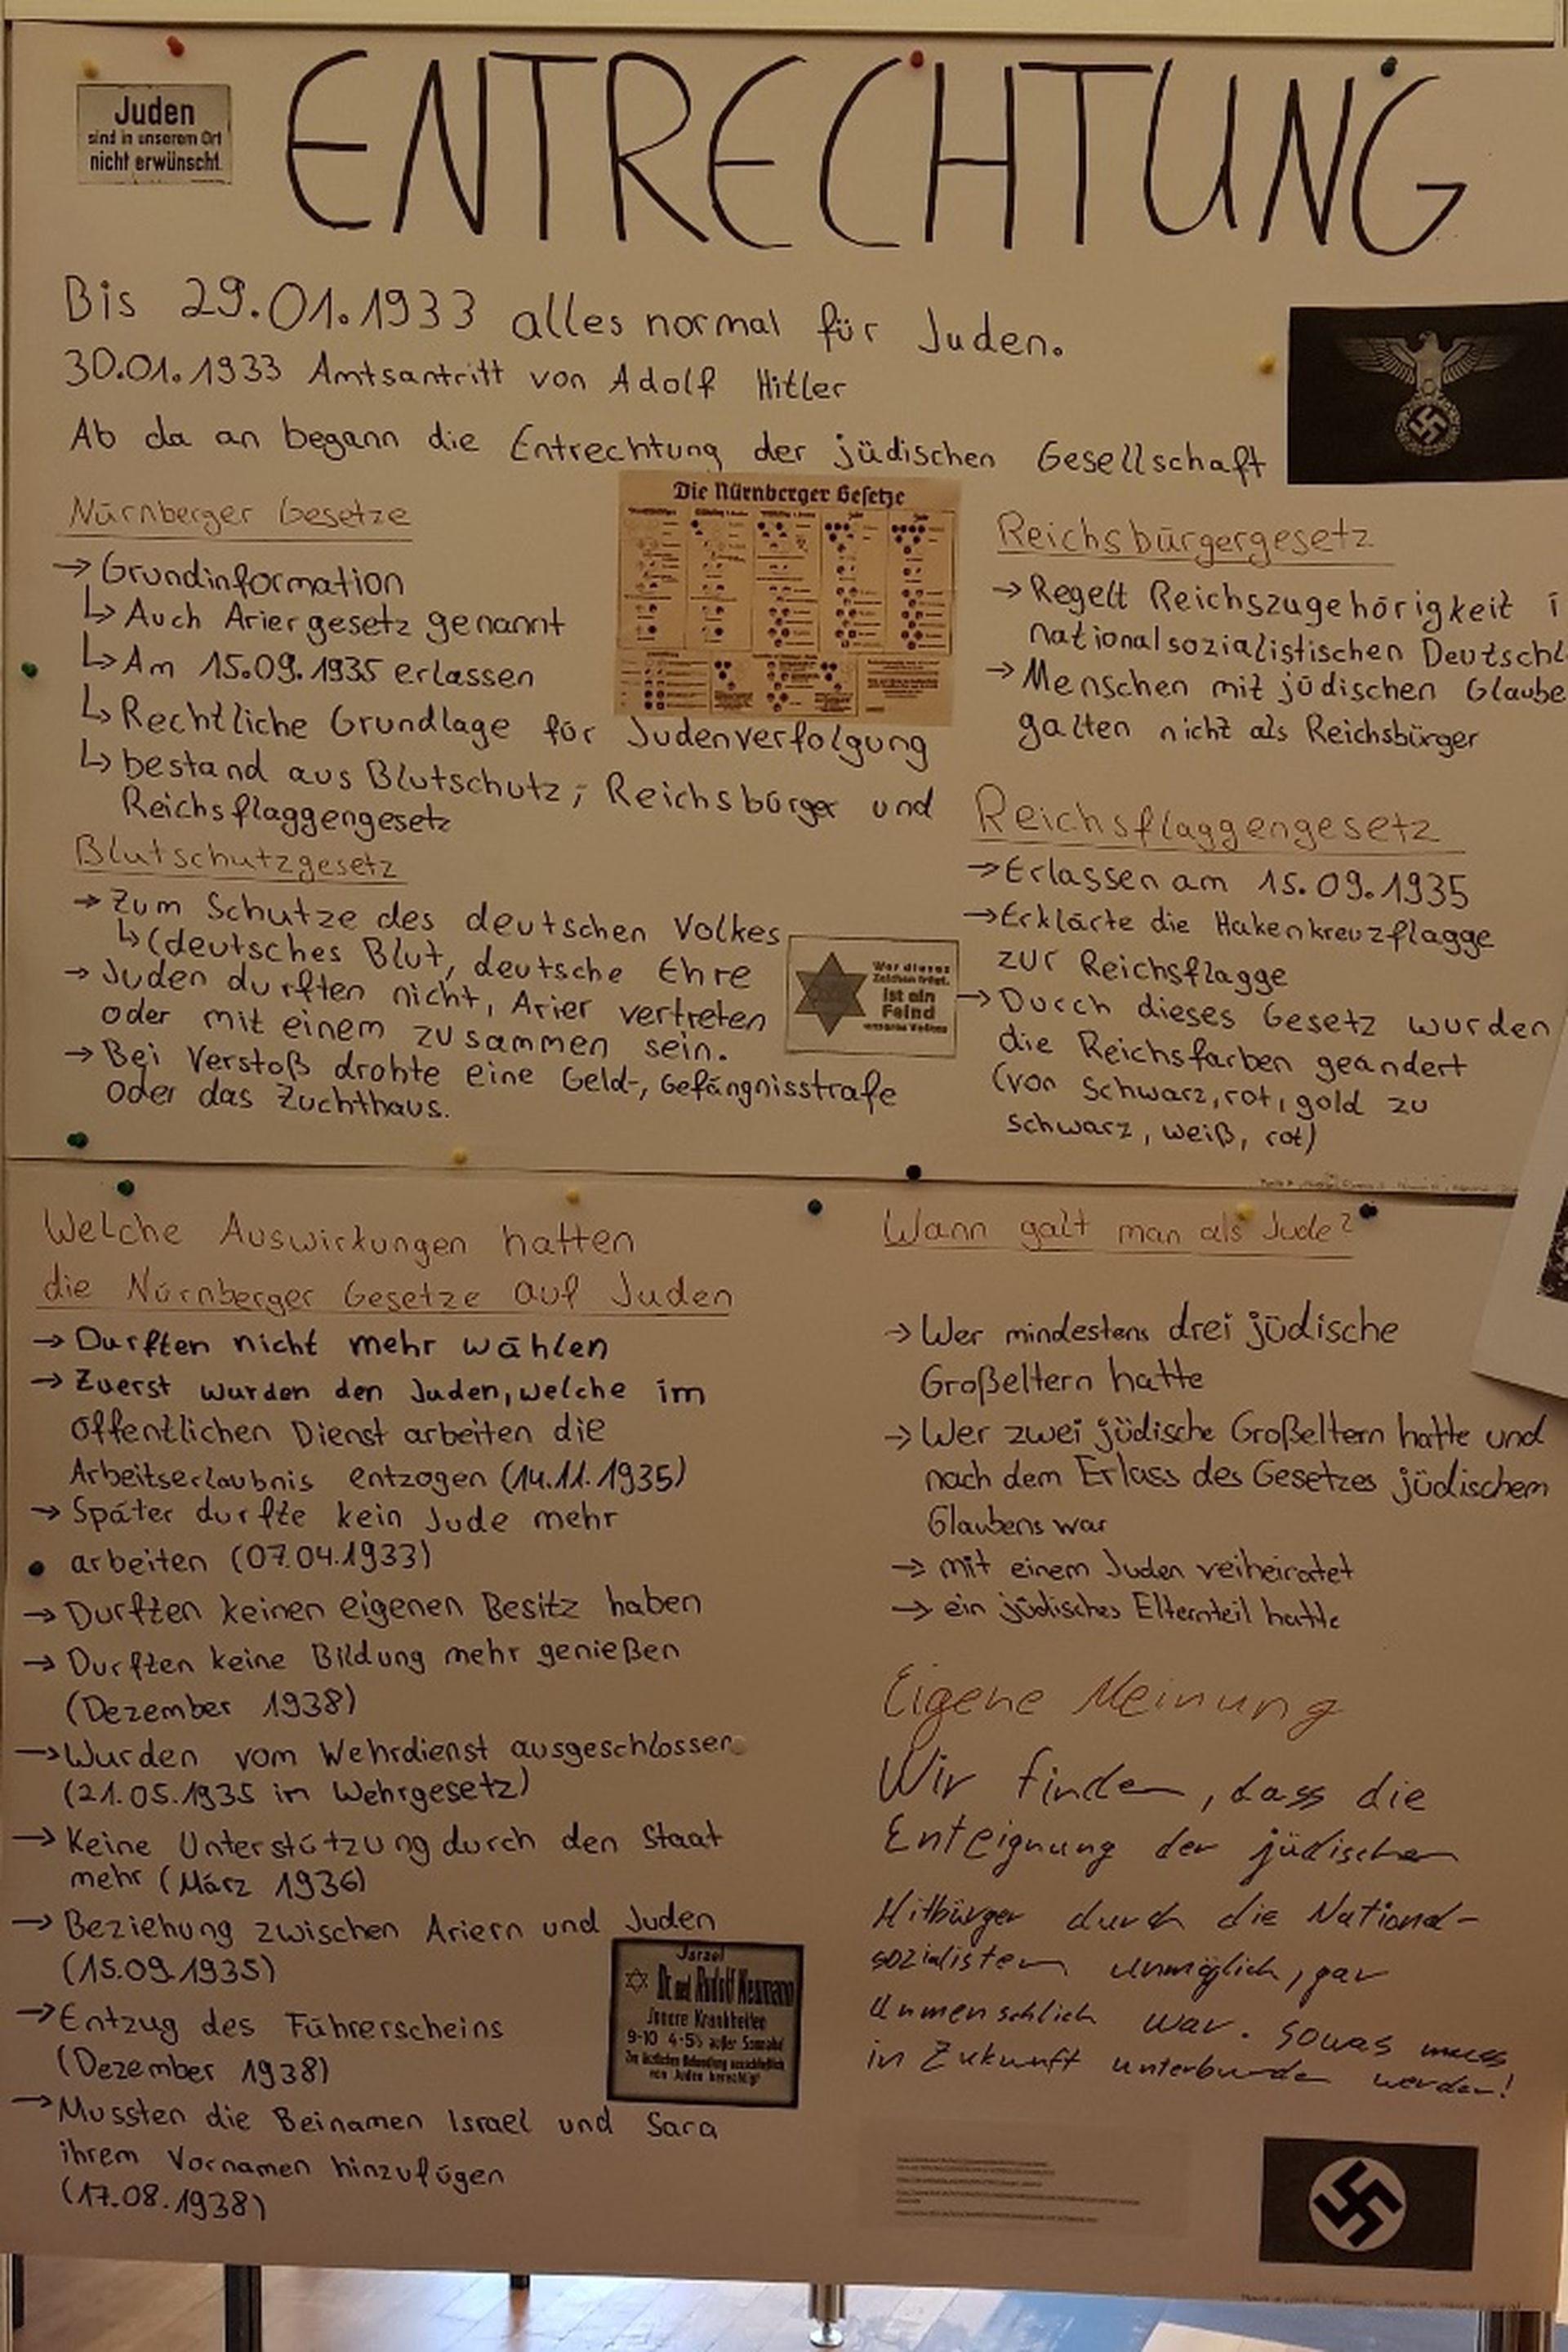 Juden
sind in unserem Ort
nicht erwünscht.
ENTRECHTUNG
Bis 29.01.1933 alles normal für Juden.
30.01.1933 Amtsantritt von Adolf Hitler
Ab da an begann die Entrechtung der jüdischen Gesellschaft
Nürnberger Gesetze
→ Grundinformation
↳ Auch Ariergesetz genannt
↳ Am 15.09.1935 erlassen
↳ Rechtliche Grundlage für Judenverfolgung
↳ bestand aus Blutschutz-, Reichsbürger und
Reichsflaggengesetz
Die Nürnberger Gesetze
Blutschutzgesetz
→ Zum Schutze des deutschen Volkes
↳ (deutsches Blut, deutsche Ehre
→ Juden durften nicht, Arier vertreten
oder mit einem zusammen sein.
→ Bei Verstoß drohte eine Geld-, Gefängnisstrafe
oder das Zuchthaus.
Wer dieses
Zeichen trägt,
ist ein
Feind
unseres Volkes
Reichsbürgergesetz
→ Regelt Reichszugehörigkeit i
nationalsozialistischen Deutschl
→ Menschen mit jüdischen Glaube
galten nicht als Reichsbürger
Reichsflaggengesetz
→ Erlassen am 15.09.1935
→ Erklärte die Hakenkreuzflagge
zur Reichsflagge
→ Durch dieses Gesetz wurden
die Reichsfarben geändert
(von Schwarz, rot, gold zu
schwarz, weiß, rot)
Welche Auswirkungen hatten
die Nürnberger Gesetze auf Juden
→ Durften nicht mehr wählen
→ Zuerst wurden den Juden, welche im
öffentlichen Dienst arbeiten die
Arbeitserlaubnis entzogen (14.11.1935)
→ Später durfte kein Jude mehr
arbeiten (07.04.1933)
→ Durften keinen eigenen Besitz haben
→ Durften keine Bildung mehr genießen
(Dezember 1938)
→ Wurden vom Wehrdienst ausgeschlossen
(21.05.1935 im Wehrgesetz)
→ Keine Unterstützung durch den Staat
mehr (März 1936)
→ Beziehung zwischen Ariern und Juden
(15.09.1935)
→ Entzug des Führerscheins
(Dezember 1938)
→ Mussten die Beinamen Israel und Sara
ihrem Vornamen hinzufügen
(17.08.1938)
Jsrael
Dr. med Rudolf Neumann
Jnnere Krankheiten
9-10 4-5½ außer Sonnabd
Zur ärztlichen Behandlung ausschließlich
von Juden berechtigt
Wann galt man als Jude?
→ Wer mindestens drei jüdische
Großeltern hatte
→ Wer zwei jüdische Großeltern hatte und
nach dem Erlass des Gesetzes jüdischem
Glaubens war
→ mit einem Juden verheiratet
→ ein jüdisches Elternteil hatte
Eigene Meinung
Wir finden, dass die
Enteignung der jüdischen
Mitbürger durch die National-
sozialisten unmöglich, gar
unmenschlich war. Sowas muss
in Zukunft unterbunden werden!